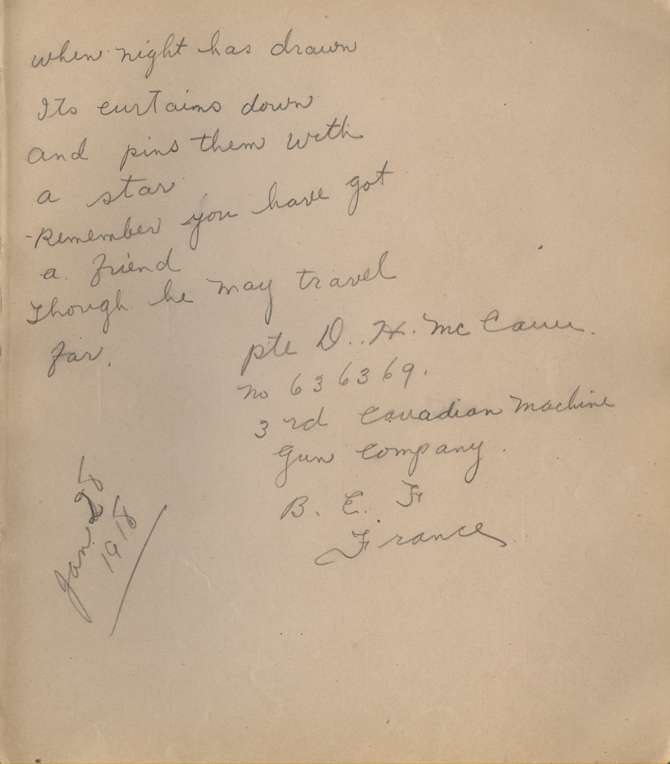 when night has drawn
Its curtains down
and pins them with
a star
-Remember you have got
a friend
Though he may travel
far.
pte D. H. Mc
no 636369.
3rd Canadian Machine
Gun Company.
B. E. F
France
Jan 28
1918